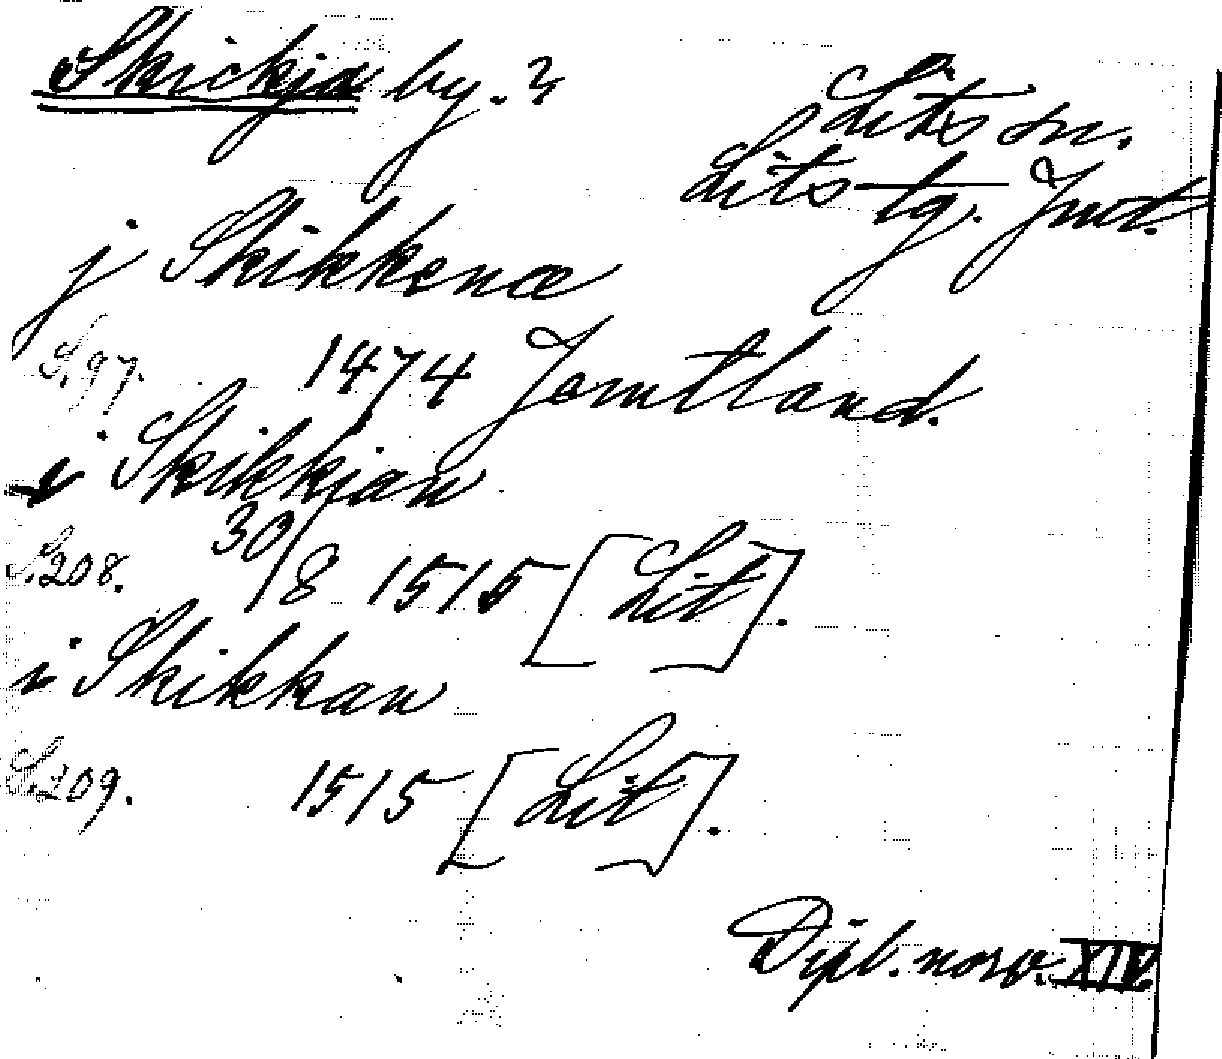 Skickja by. ?
Lits sn.
Lits tg. Jmt.
j Skikkenæ
S. 97. 1474 Jemtland.
i Skikkjan
S. 208. 30/8 1515 [Lit].
i Skikkan
S. 209. 1515 [Lit].
Dipl. norv. XIV.